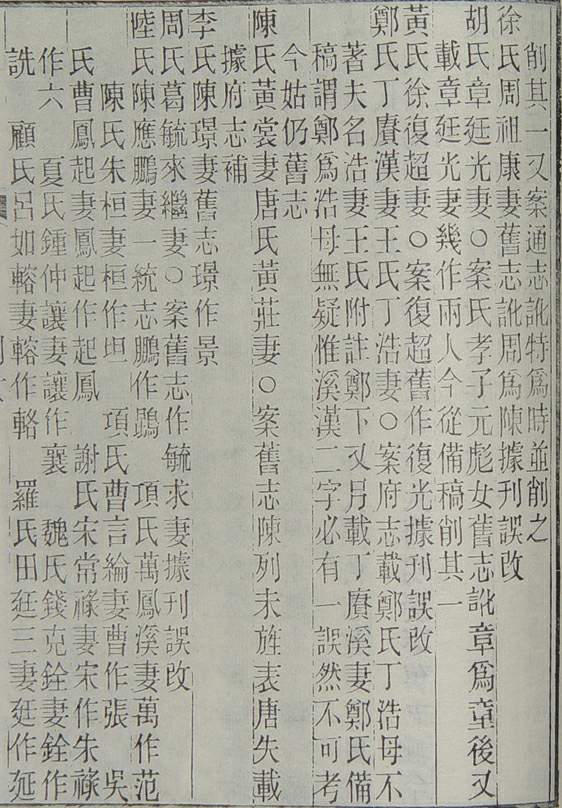 削其一又案通志訛特爲時並削之
徐氏周祖康妻舊志訛周爲陳據刊誤改
胡氏章廷光妻○案氏孝子元彪女舊志訛章爲童後又
載章廷光妻幾作兩人今從備稿削其一
黃氏徐復超妻○案復超舊作復光據刊誤改
鄭氏丁賡漢妻王氏丁浩妻○案府志載鄭氏丁浩母不
著夫名浩妻王氏附註鄭下又另載丁賡溪妻鄭氏備
稿謂鄭爲浩母無疑惟溪漢二字必有一誤然不可考
今姑仍舊志
陳氏黃裳妻唐氏黃莊妻○案舊志陳列未旌表唐失載
據府志補
李氏陳璟妻舊志璟作景
周氏葛毓來繼妻○案舊志作毓求妻據刊誤改
陸氏陳應鵬妻一統志鵬作鵾 項氏萬鳳溪妻萬作范
陳氏朱桓妻桓作坦 項氏曹言綸妻曹作張 吳
氏曹鳳起妻鳳起作起鳳 謝氏宋常祿妻宋作朱祿
作六 夏氏鍾仲讓妻讓作襄 魏氏錢克銓妻銓作
詵 顧氏呂如輅妻輅作輅 羅氏田廷三妻廷作延